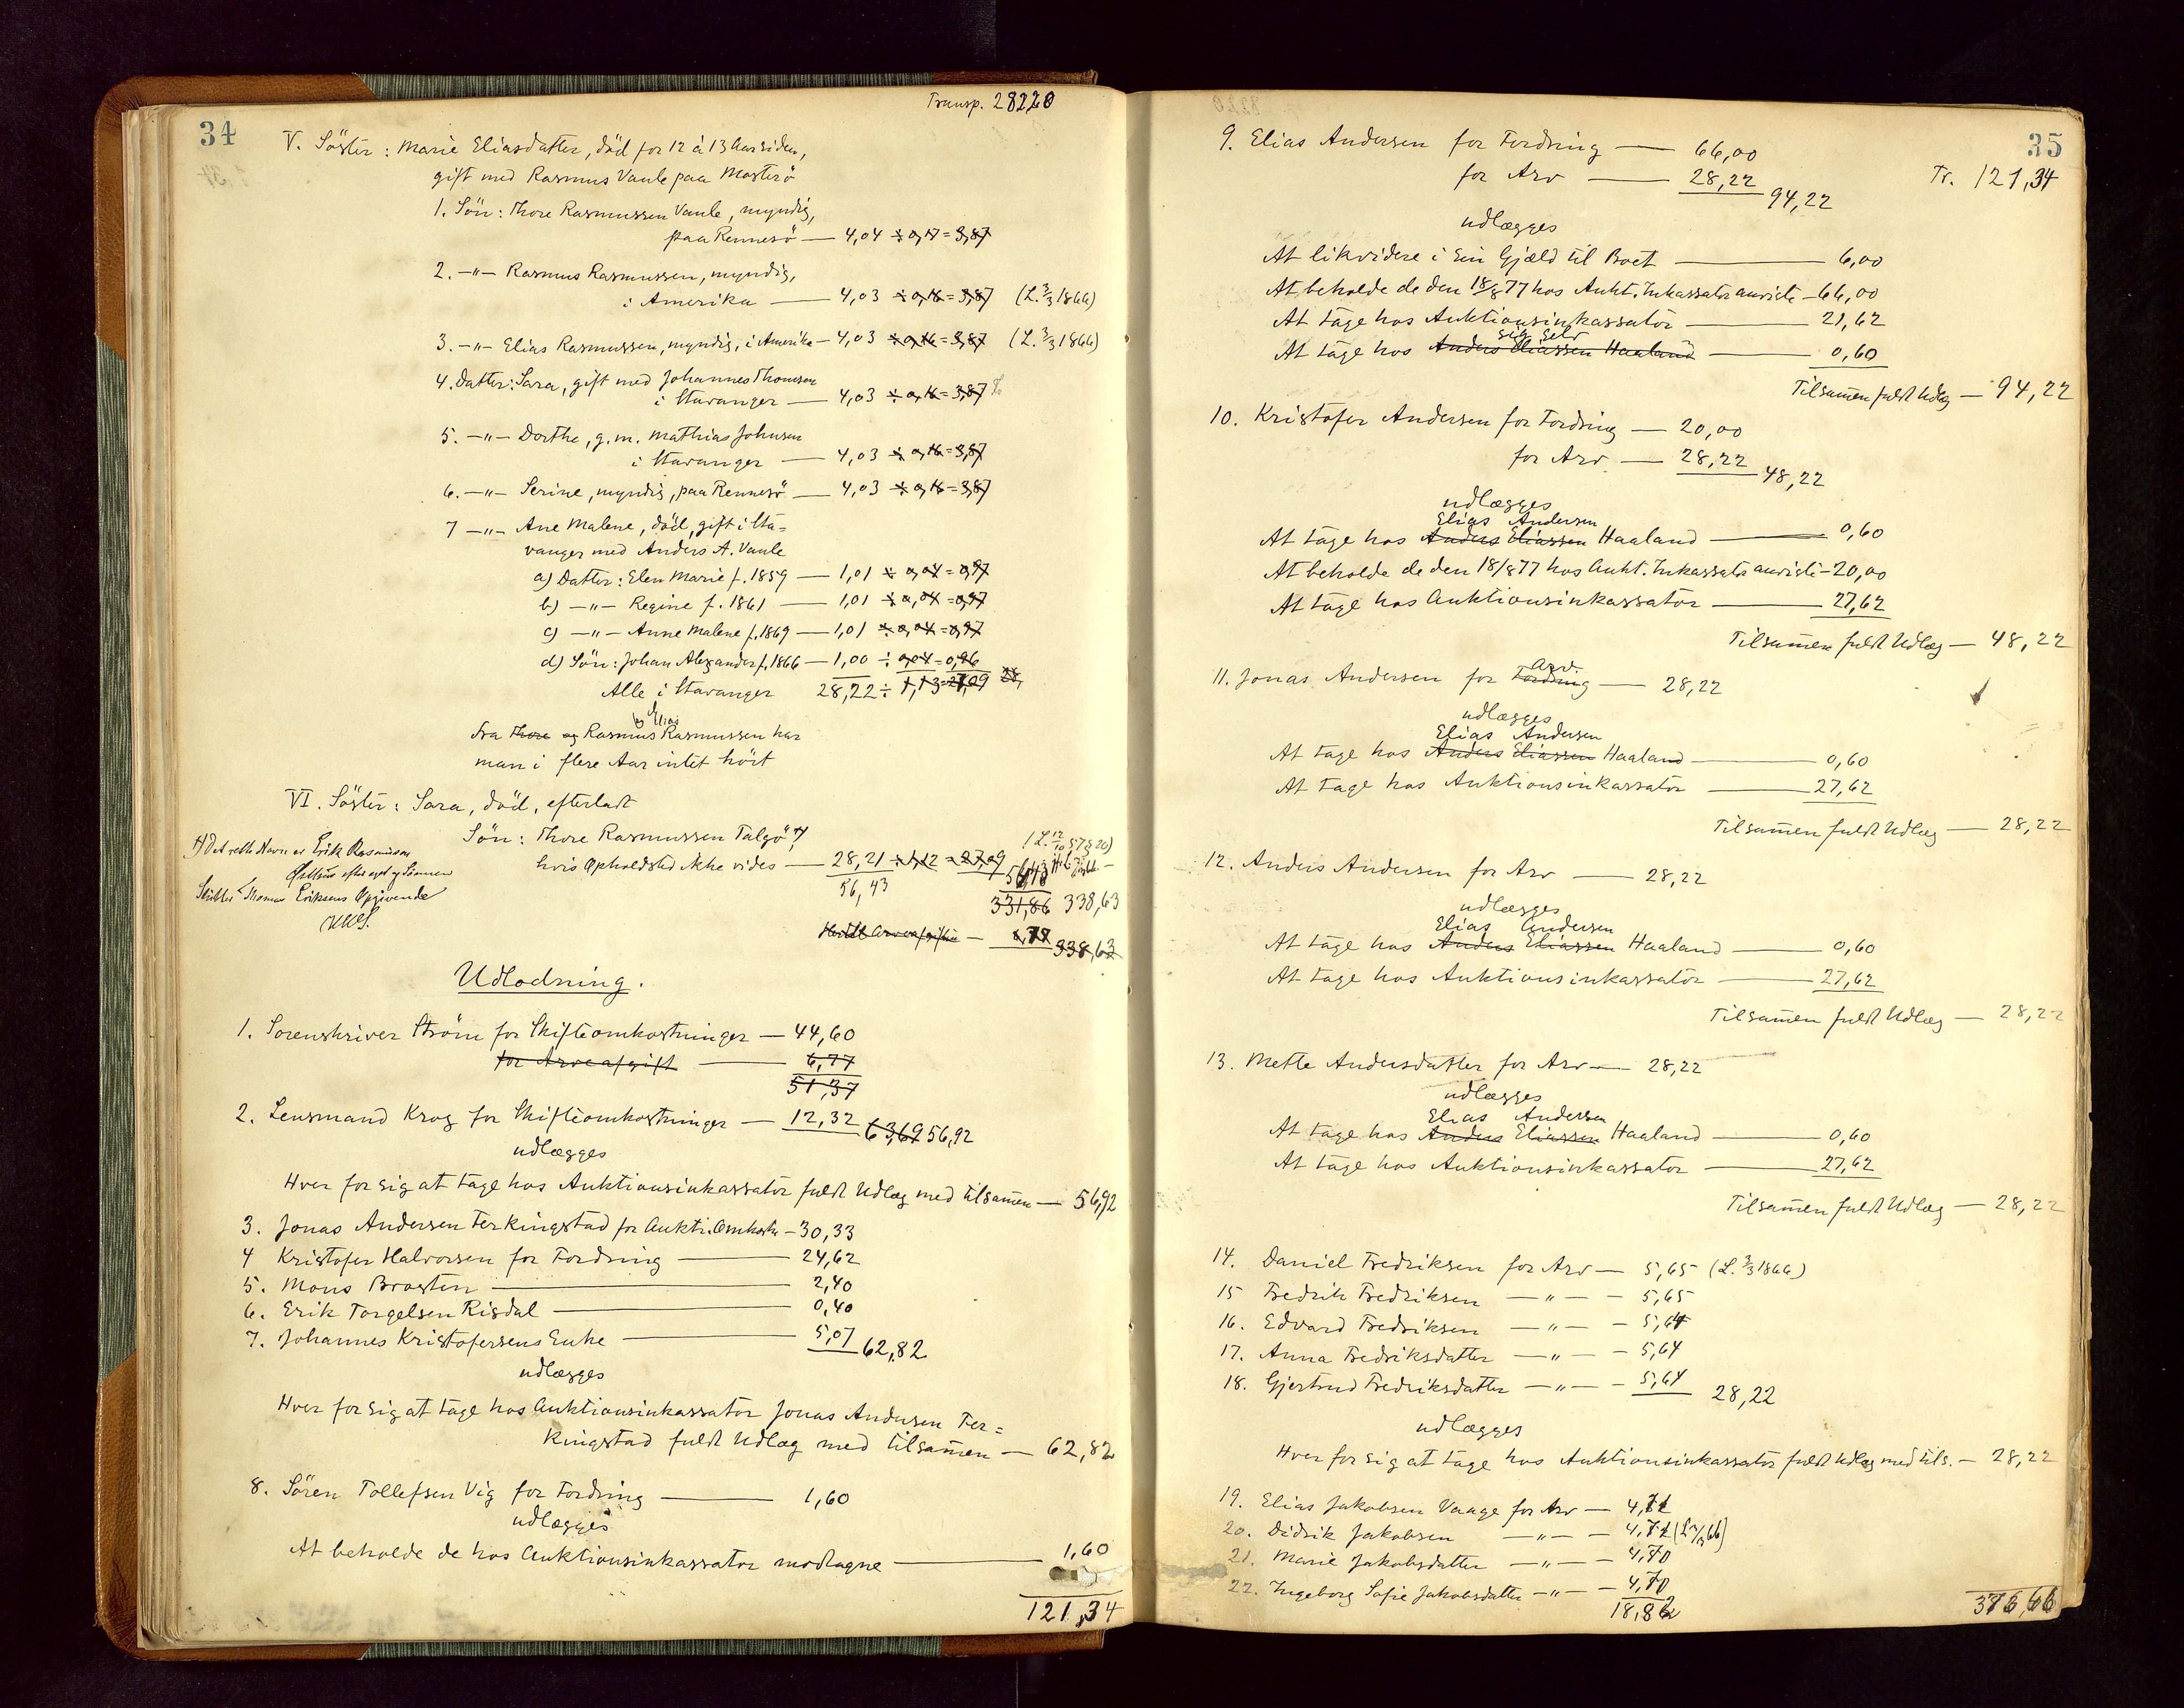 Transp. 282,20
34
V. Söster: Marie Eliasdatter, död for 12 à 13 Aar siden,
gift med Rasmus Vaule paa Mosterö
1. Sön: Thore Rasmussen Vaule, myndig,
paa Rennesö — 4,04 ÷ 0,17 = 3,87
2. —"— Rasmus Rasmussen, myndig,
i Amerika — 4,03 ÷ 0,16 = 3,87 (L. 3/3 1866)
3. —"— Elias Rasmussen, myndig, i Amerika — 4,03 ÷ 0,16 = 3,87 (L. 3/3 1866)
4. Datter: Sara, gift med Johannes Thomsen
i Stavanger — 4,03 ÷ 0,16 = 3,87
5. —"— Dorthe, g. m. Mathias Johnsen
i Stavanger — 4,03 ÷ 0,16 = 3,87
6. —"— Serine, myndig, paa Rennesö — 4,03 ÷ 0,16 = 3,87
7 —"— Ane Malene, död, gift i Sta=
vanger med Anders A. Vaule
a) Datter: Elen Marie f. 1859 — 1,01 ÷ 0,04 = 0,97
b) —"— Regine f. 1861 — 1,01 ÷ 0,04 = 0,97
c) —"— Anne Malene f. 1869 — 1,01 ÷ 0,04 = 0,97
d) Sön: Johan Alexander f. 1866 — 1,00 ÷ 0,04 = 0,96
Alle i Stavanger 28,22 ÷ 1,13 = 27,09 28,
og Elias
Fra Thore og Rasmus Rasmussen har
man i flere Aar intet hört
VI. Söster: Sara, död, efterladt
Sön: Thore Rasmussen Talgö
(L. 12/10 57 § 20)
hvis Opholdssted ikke vides — 28,21 ÷ 1,12 = 27,09
56,43
56,43
331,86 338,63
Det rette Navn er Erik Rasmussen
efter eget og Sönnen
Thomas Eriksens Opgivende
Hertil Arveafgiften — 6,77 338,63
Udlodning.
1. Sorenskriver Ström for Skifteomkostninger — 44,60
for Arveafgift — 6,77
51,37
2. Lensmand Krog for Skifteomkostninger — 12,32 63,69 56,92
udlægges
Hver for sig at tage hos Auktionsinkassator fuldt Udlæg med tilsamen — 56,92
3. Jonas Andersen Terkingstad for Aukti. Omkostn — 30,33
4 Kristofer Halvorsen for Fordring — 24,62
5. Mons Brosten — 2,40
6. Erik Torgelsen Risdal — 0,40
7. Johannes Kristofersens Enke — 5,07 62,82
udlægges
Hver for sig at tage hos Auktionsinkassator Jonas Andersen Ter=
kingstad fuldt Udlæg med tilsamen — 62,82
8. Sören Tollefsen Vig for Fordring — 1,60
udlægges
At beholde de hos Auktionsinkassator modtagne — 1,60
121,34
35
9. Elias Andersen for Fordring — 66,00
for Arv — 28,22 94,22
Tr. 121,34
udlægges
At likvidere i Sin Gjæld til Boet — 6,00
At beholde de den 18/8 77 hos Aukt. Inkassator anviste — 66,00
At tage hos Auktionsinkassator — 21,62
sig selv
At tage hos Anders Eliassen Haaland — 0,60
Tilsamen fuldt Udlæg — 94,22
10. Kristofer Andersen for Fordring — 20,00
for Arv — 28,22 48,22
udlægges
Elias Andersen
At tage hos Anders Eliassen Haaland — 0,60
At beholde de den 18/8 77 hos Aukt. Inkassator anviste — 20,00
At tage hos Auktionsinkassator — 27,62
Tilsamen fuldt Udlæg — 48,22
Arv.
11. Jonas Andersen for Fordring — 28,22
udlægges
Elias Andersen
At tage hos Anders Eliassen Haaland — 0,60
At tage hos Auktionsinkassator — 27,62
Tilsamen fuldt Udlæg — 28,22
12. Anders Andersen for Arv — 28,22
udlægges
Elias Andersen
At tage hos Anders Eliassen Haaland — 0,60
At tage hos Auktionsinkassator — 27,62
Tilsamen fuldt Udlæg — 28,22
13. Mette Andersdatter for Arv — 28,22
udlægges
Elias Andersen
At tage hos Anders Eliassen Haaland — 0,60
At tage hos Auktionsinkassator — 27,62
Tilsamen fuldt Udlæg — 28,22
14. Daniel Fredriksen for Arv — 5,65 (L. 3/3 1866)
15 Fredrik Fredriksen —"— — 5,65
16. Edvard Fredriksen —"— — 5,64
17. Anna Fredriksdatter —"— — 5,64
18. Gjertrud Fredriksdatter —"— — 5,64 28,22
udlægges
Hver for sig at tage hos Auktionsinkassator fuldt Udlæg med tils. — 28,22
19. Elias Jakobsen Vaage for Arv — 4,71
20. Didrik Jakobsen —"— — 4,71 (L 3/3 66)
21. Marie Jakobsdatter —"— — 4,70
22. Ingeborg Sofie Jakobsdatter —"— — 4,70
18,82
376,66